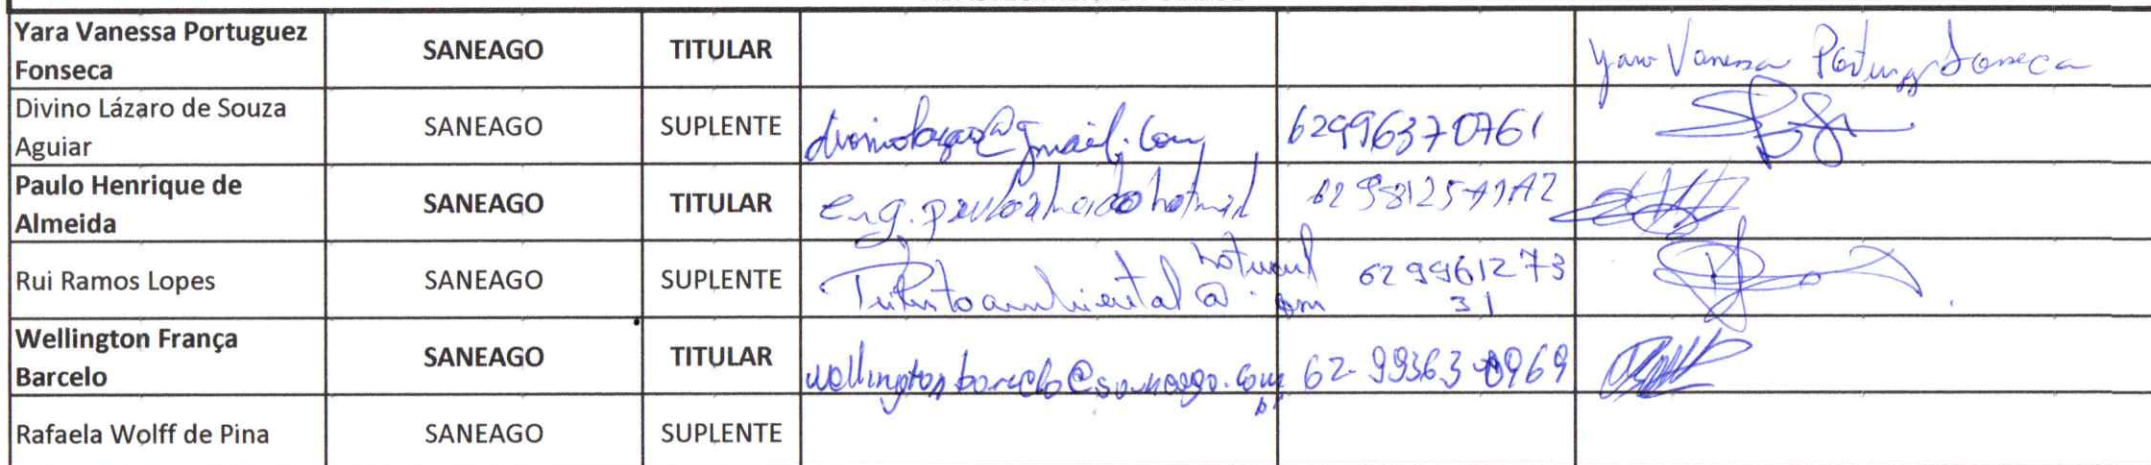 Yara Vanessa Portuguez
Fonseca
SANEAGO TITULAR Yara Vanessa Fonseca
Divino Lázaro de Souza
Aguiar
SANEAGO SUPLENTE divinolazaro@gmail.com 62996370761
Paulo Henrique de
Almeida
SANEAGO TITULAR
Rui Ramos Lopes SANEAGO SUPLENTE hotmail 629961273
31
Wellington França
Barcelo
SANEAGO TITULAR wellingtonbarcelo@saneago.com 62-99363-0969
br
Rafaela Wolff de Pina SANEAGO SUPLENTE